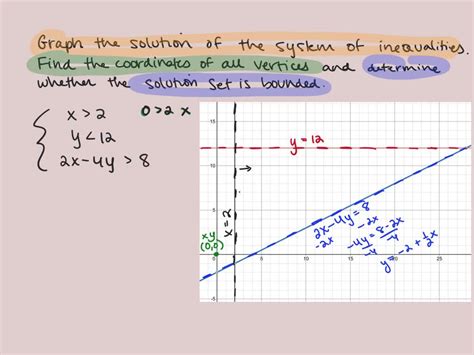 Graph the solution of the system of inequalities.
Find the coordinates of all vertices and determine
whether the solution set is bounded.
x > 2    0 > 2 x
y < 12
2x - 4y > 8
y = 12
x = 2
x y
(0,0)
2x - 4y = 8
-2x    -2x
-4y = 8 - 2x
-4    -4
y = -2 + 1/2 x
15
10
5
-5
0
5
10
15
20
25